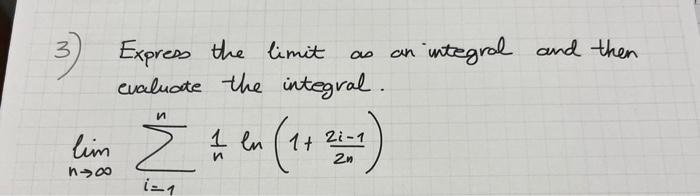 3) Express the limit as an integral and then
evaluate the integral.
lim n→∞ n ∑ i=1 1/n ln (1 + 2i-1/2n)